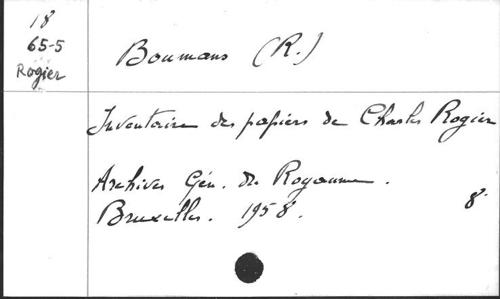 18
65-5
Rogier
Boumans (R.)
Inventaire des papiers de Charles Rogier
Archives Gén. du Royaume.
Bruxelles. 1958. 8°